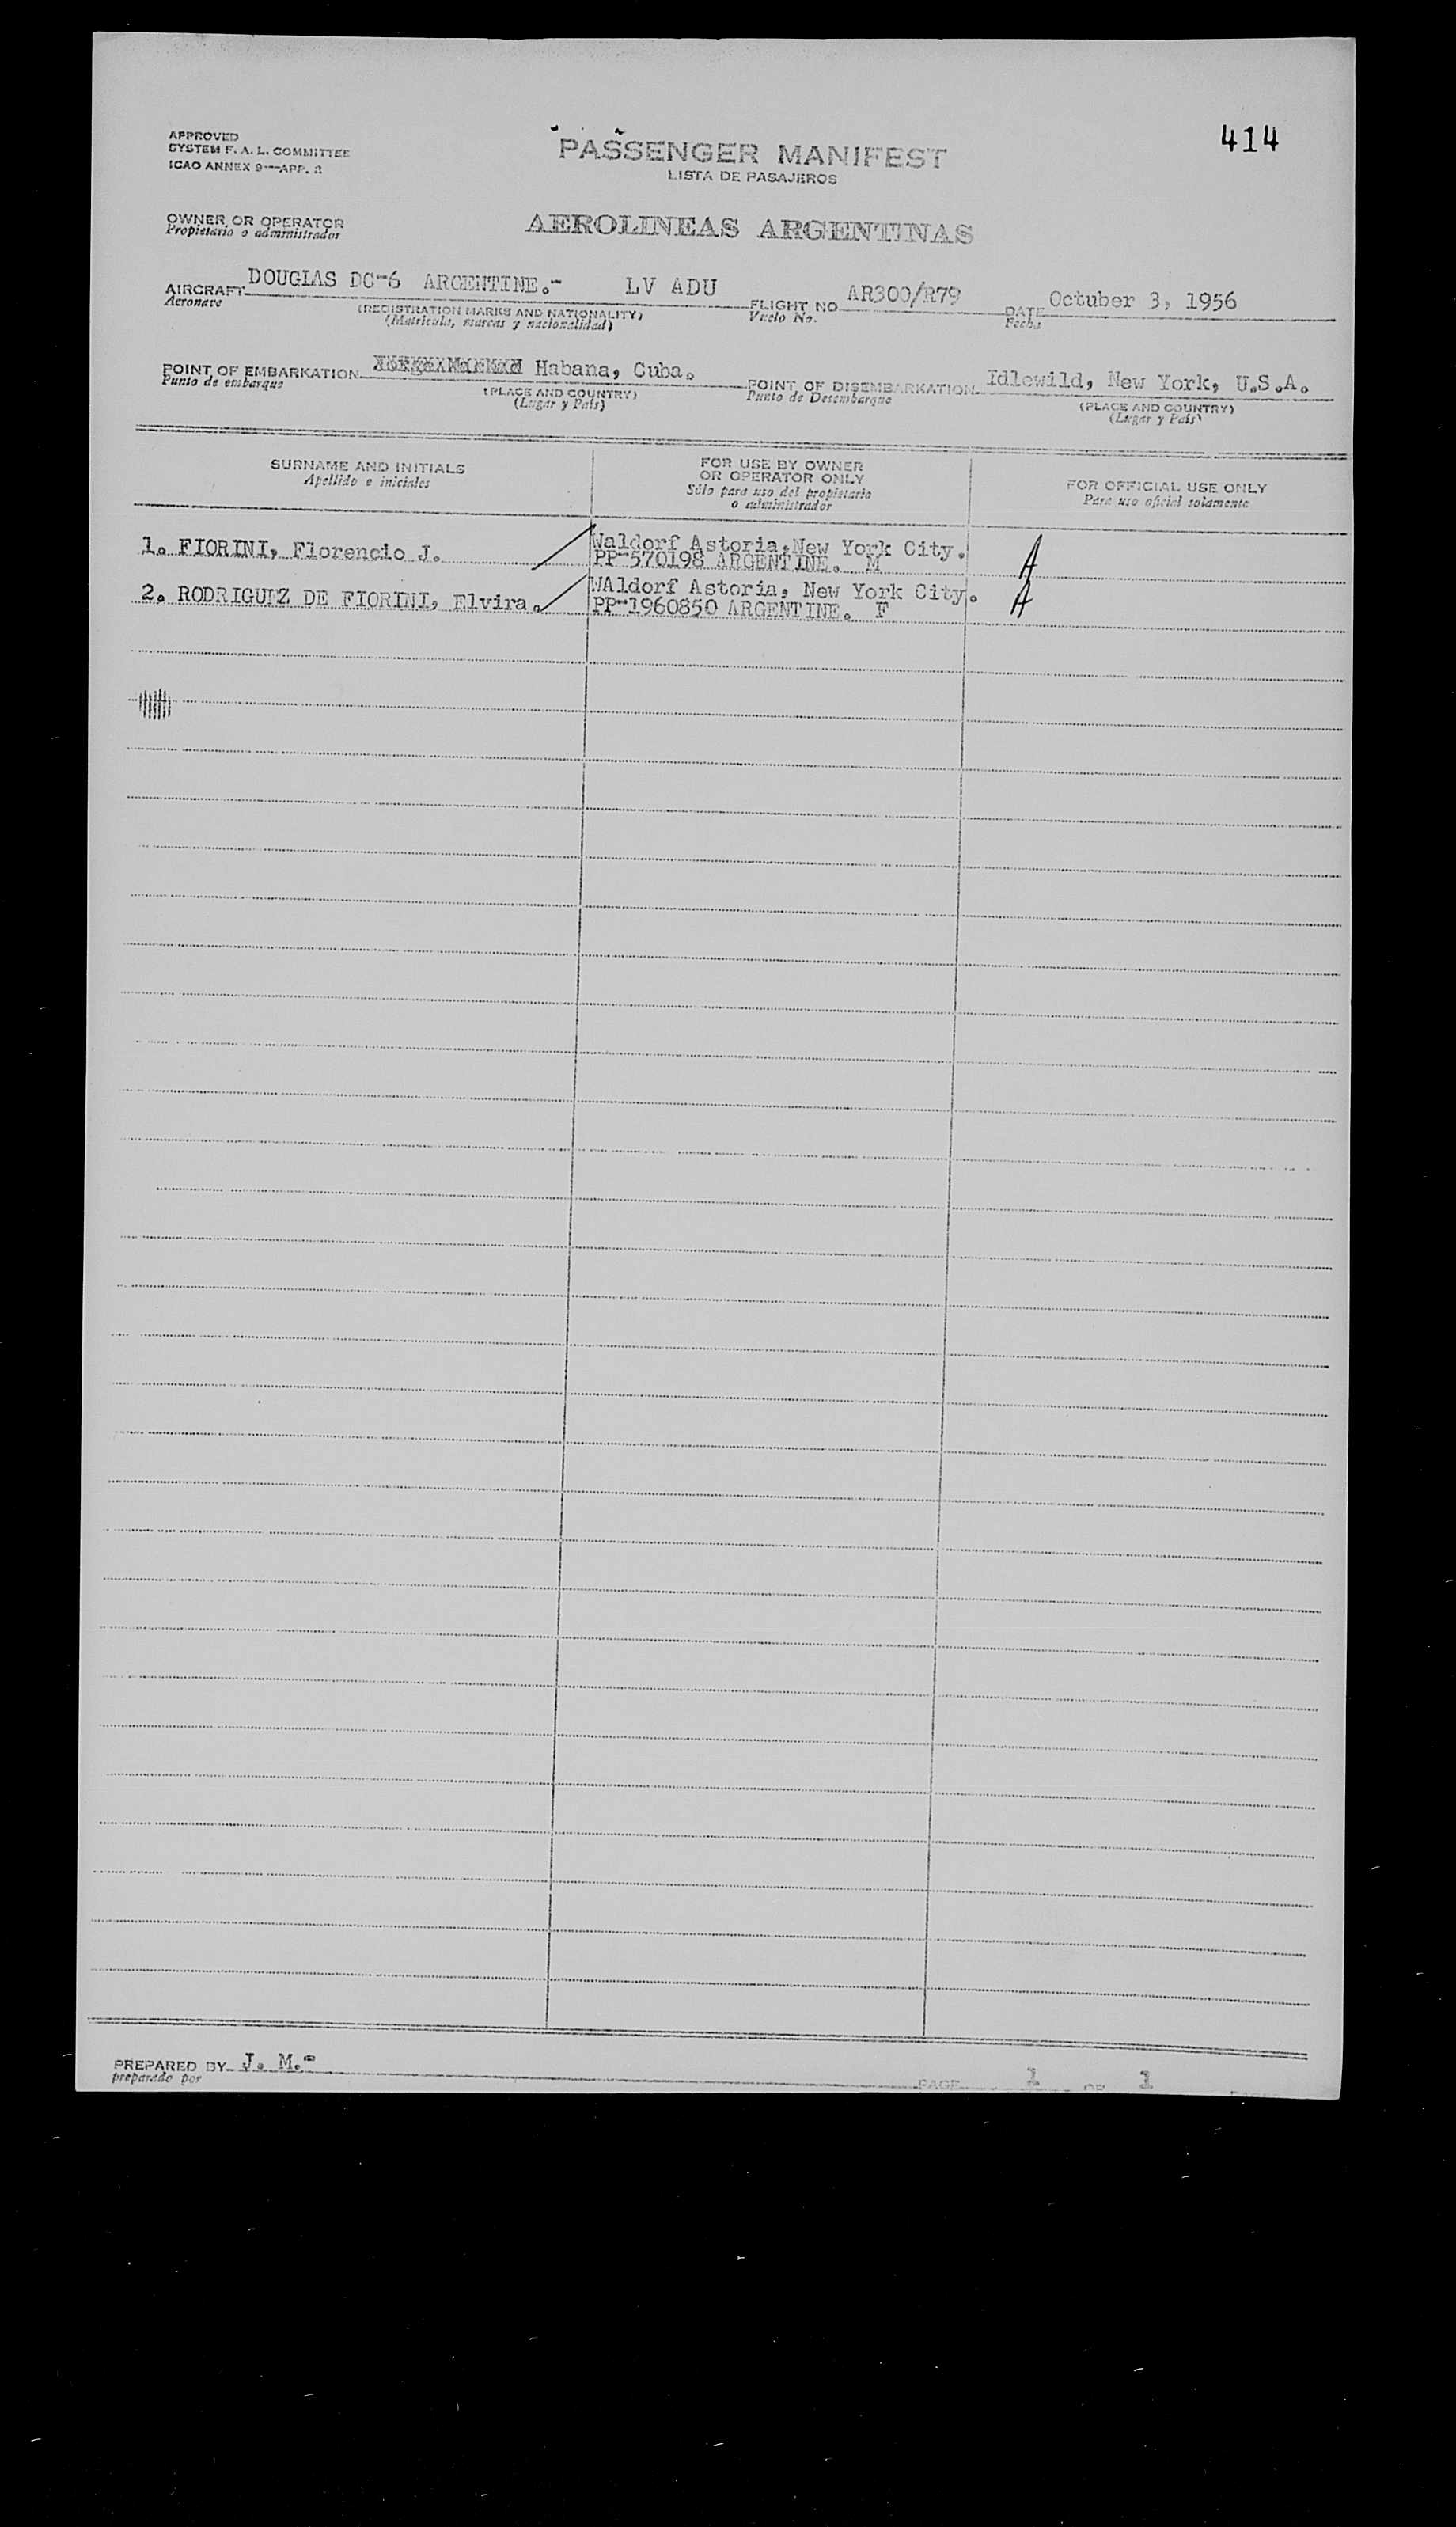 414
APPROVED
SYSTEM F. A. L. COMMITTEE
ICAO ANNEX 9—APP. 2
PASSENGER MANIFEST
LISTA DE PASAJEROS
OWNER OR OPERATOR
Propietario o administrador
AEROLINEAS ARGENTINAS
AIRCRAFT DOUGLAS DC-6 ARGENTINE.- LV ADU
Aeronave
(REGISTRATION MARKS AND NATIONALITY)
(Matrícula, marcas y nacionalidad)
FLIGHT NO AR300/R79
Vuelo No.
DATE Octuber 3, 1956
Fecha
POINT OF EMBARKATION Habana, Cuba.
Punto de embarque
(PLACE AND COUNTRY)
(Lugar y País)
POINT OF DISEMBARKATION Idlewild, New York, U.S.A.
Punto de Desembarque
(PLACE AND COUNTRY)
(Lugar y País)
SURNAME AND INITIALS
Apellido e iniciales
FOR USE BY OWNER
OR OPERATOR ONLY
Sólo para uso del propietario
o administrador
FOR OFFICIAL USE ONLY
Para uso oficial solamente
1. FIORINI, Florencio J.
Waldorf Astoria,New York City.
PP-570198 ARGENTINE. M
A
2. RODRIGUEZ DE FIORINI, Elvira.
WAldorf Astoria, New York City.
PP-1960850 ARGENTINE. F
A
PREPARED BY J. M.-
preparado por
PAGE 1 OF 1